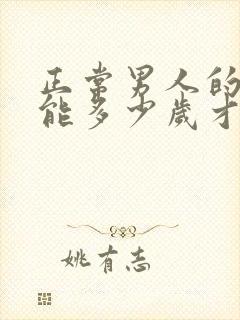 正常男人的
能多少歲才
姚有志